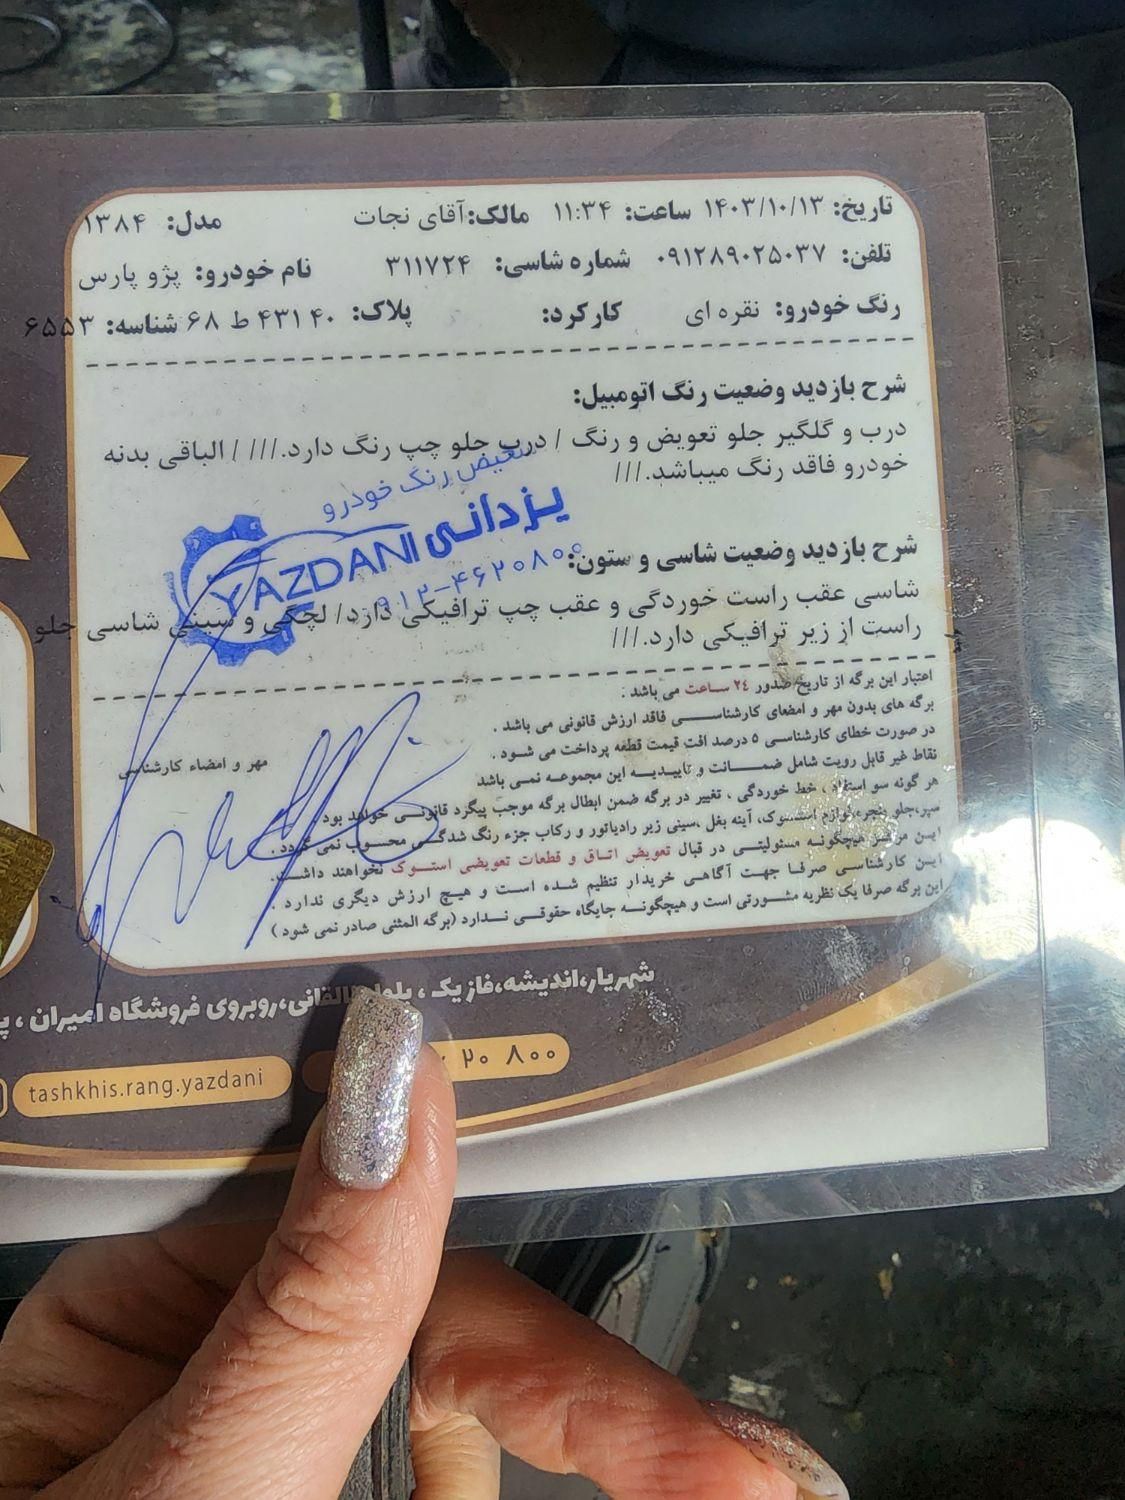 تاریخ: ۱۴۰۳/۱۰/۱۳ ساعت: ۱۱:۳۴ مالک: آقای نجات مدل: ۱۳۸۴
تلفن: ۰۹۱۲۸۹۰۲۵۰۳۷ شماره شاسی: ۳۱۱۷۲۴ نام خودرو: پژو پارس
رنگ خودرو: نقره ای کارکرد: پلاک: ۴۰ ۴۳۱ ط ۶۸ شناسه: ۶۵۵۳
شرح بازدید وضعیت رنگ اتومبیل:
درب و گلگیر جلو تعویض و رنگ / درب جلو چپ رنگ دارد./// / الباقی بدنه
خودرو فاقد رنگ میباشد.///
تشخیص رنگ خودرو
یزدانی YAZDANI
۰۹۱۲-۴۶۲۰۸۰۰
شرح بازدید وضعیت شاسی و ستون:
شاسی عقب راست خوردگی و عقب چپ ترافیکی دارد/ لچکی و سینی شاسی جلو
راست از زیر ترافیکی دارد.///
اعتبار این برگه از تاریخ صدور ۲۴ ساعت می باشد .
برگه های بدون مهر و امضای کارشناسی فاقد ارزش قانونی می باشد .
در صورت خطای کارشناسی ۵ درصد افت قیمت قطعه پرداخت می شود .
نقاط غیر قابل رویت شامل ضمانت و تاییدیه این مجموعه نمی باشد
هر گونه سو استفاده ، خط خوردگی ، تغییر در برگه ضمن ابطال برگه موجب پیگرد قانونی خواهد بود
سپر،جلو پنجره،لوازم استوک، آینه بغل ،سینی زیر رادیاتور و رکاب جزء رنگ شدگی محسوب نمی گردد .
این مرکز هیچگونه مسئولیتی در قبال تعویض اتاق و قطعات تعویضی استوک نخواهند داشت.
این کارشناسی صرفا جهت آگاهی خریدار تنظیم شده است و هیچ ارزش دیگری ندارد .
این برگه صرفا یک نظریه مشورتی است و هیچگونه جایگاه حقوقی ندارد (برگه المثنی صادر نمی شود)
مهر و امضاء کارشناسی
شهریار،اندیشه،فاز یک ، بلوار طالقانی،روبروی فروشگاه امیران ،
۲۰ ۸۰۰
tashkhis.rang.yazdani